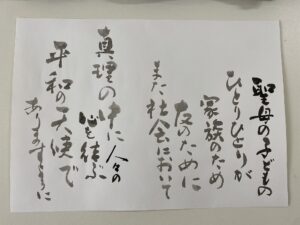 聖母の子どもの
ひとりひとりが
家族のため
友のために
また社会において
真理の中に人々の
心を結ぶ
平和の天使で
ありますように